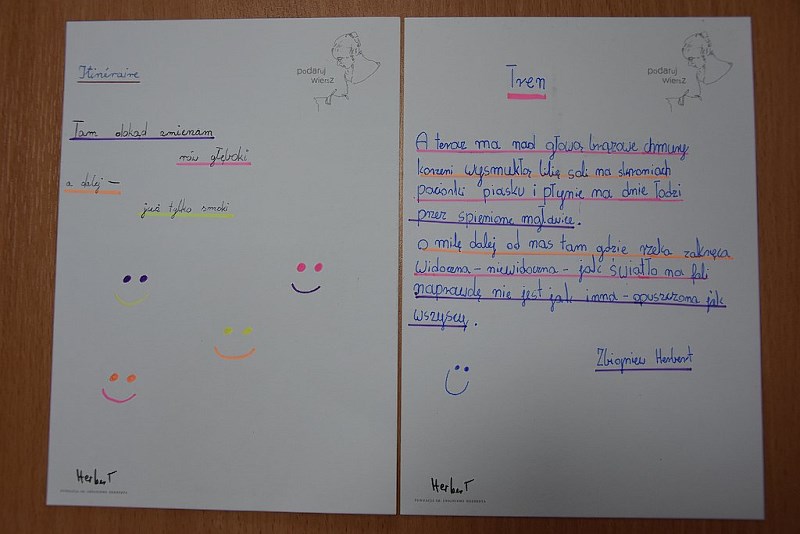 Itinéraire
podaruj
wiersz
Tam dokąd zmierzam
rów głęboki
a dalej —
już tylko smoki
HerberT
FUNDACJA IM. ZBIGNIEWA HERBERTA
Tren
podaruj
wiersz
A teraz ma nad głową brązowe chmury
korzeni wysmukłą lilię soli na skroniach
paciorki piasku i płynie na dnie łodzi
przez spienione mgławice.
O milę dalej od nas tam gdzie rzeka zakręca
Widoczna – niewidoczna – jak światło na fali
naprawdę nie jest jak inna – opuszczona jak
wszyscy.
Zbigniew Herbert
HerberT
FUNDACJA IM. ZBIGNIEWA HERBERTA